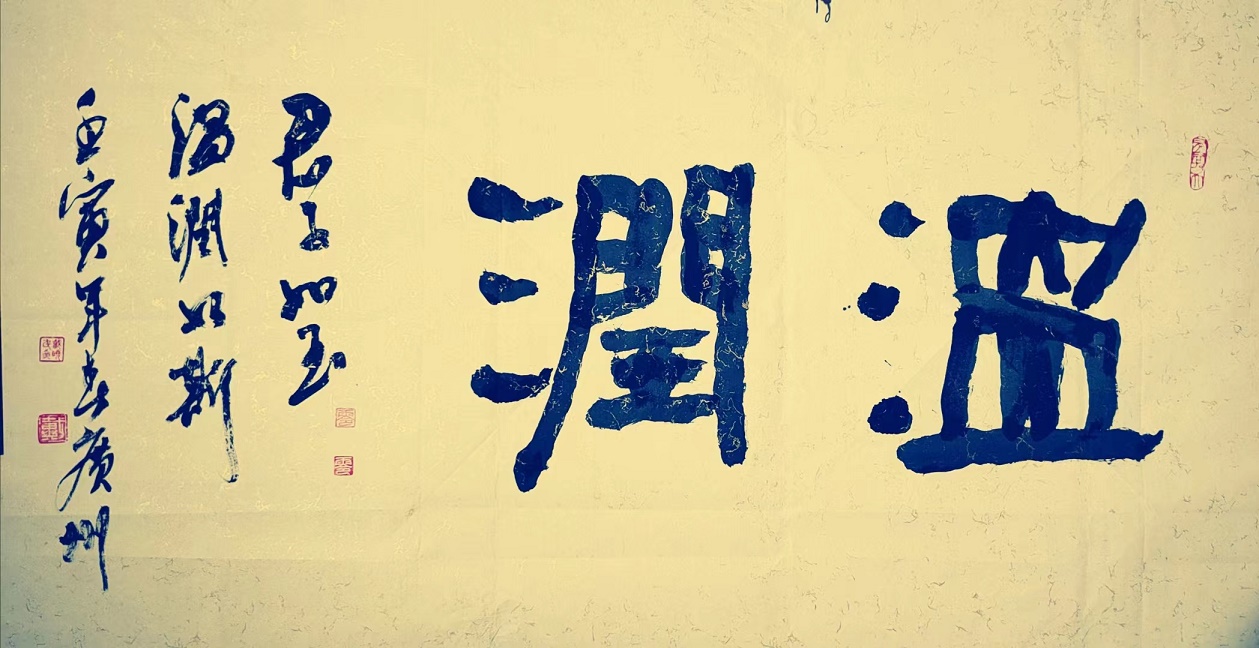 溫潤
君子如玉
溫潤如斯
壬寅年春廣州